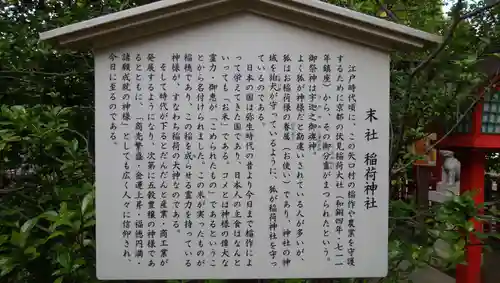 末社 稲荷神社
江戸時代頃に、この矢口村の稲作や農業を守護
するために京都の伏見稲荷大社（和銅四年・七一一
年鎮座）から、その御分霊がまつられたという。
御祭神は宇迦之御魂神。
よく狐が神様だと勘違いされている人が多いが、
狐はお稲荷様の眷属（お使い）であり、神社の神
域を狛犬が守っているように、狐が稲荷神社を守っ
ているのである。
日本の国は弥生時代の昔より今日まで稲作によ
って栄えてきた国であり、日本人の主食はなんと
いっても「お米」である。「コメ」とは神様の偉大な
霊力・御恵が「こめられたもの」であるというこ
とから名付けられました。この米が実ったものが
稲穂であり、この稲を成らせる霊力を持っている
神様が、すなわち稲荷の大神なのである。
そして時代が下るとだんだんと産業・商工業が
発展するようになり、次第に五穀豊穣の神様であ
るとともに、商売繁盛・金運上昇・福徳円満・
諸観成就の神様」としても広く人々に信仰され、
今日に至るのである。